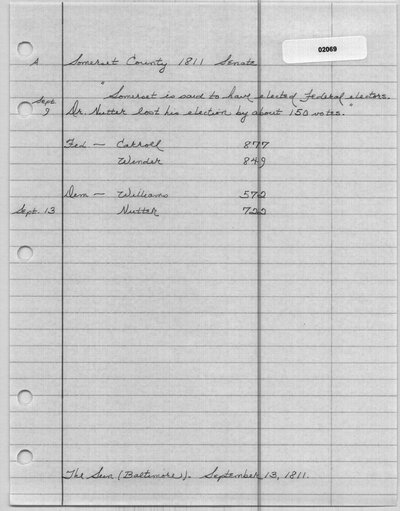 02069
A Somerset County 1811 Senate
"Somerset is said to have elected Federal electors.
Sept. 9 Dr. Nutter lost his election by about 150 votes."
Fed. — Carroll 877
Winder 849
Dem — Williams 572
Sept. 13 Nutter 722
The Sun (Baltimore). September 13, 1811.